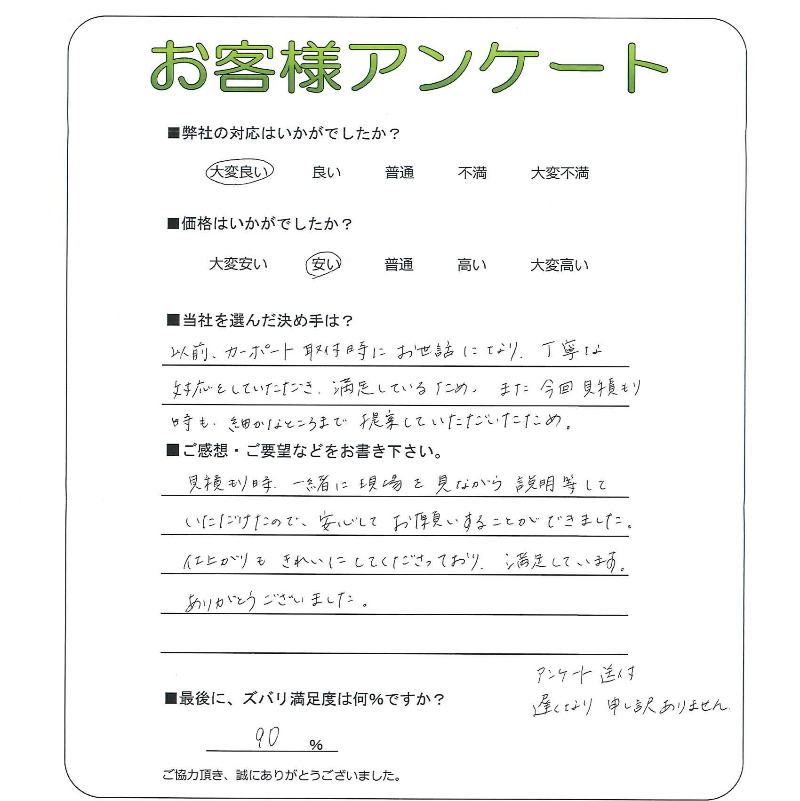 お客様アンケート
■弊社の対応はいかがでしたか？
大変良い 良い 普通 不満 大変不満
■価格はいかがでしたか？
大変安い 安い 普通 高い 大変高い
■当社を選んだ決め手は？
以前、カーポート取付時にお世話になり、丁寧な
対応をしていただき、満足しているため。また今回見積もり
時も、細かなところまで提案していただいたため。
■ご感想・ご要望などをお書き下さい。
見積もり時、一緒に現場を見ながら説明等して
いただけたので、安心してお願いすることができました。
仕上がりもきれいにしてくださっており、満足しています。
ありがとうございました。
アンケート送付
遅くなり申し訳ありません。
■最後に、ズバリ満足度は何%ですか？
90 %
ご協力頂き、誠にありがとうございました。